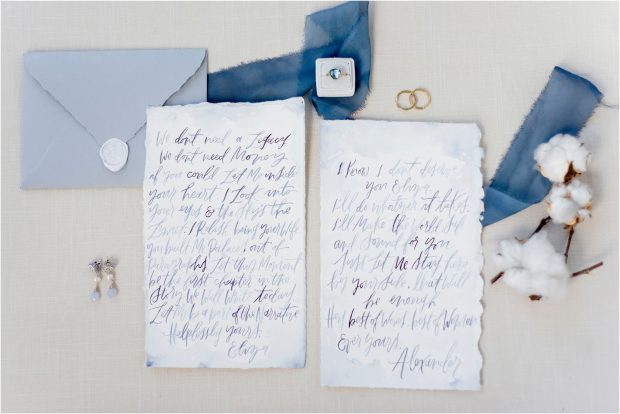 We don't need a Legacy
We don't need Money
if you could Let Me inside
your heart I Look into
your eyes & the Skys the
Limit. I Relish being your Wife
You built Me Palaces out of
Paragraphs Let this Moment
be the first chapter in the
Story We Will Write today
Let me be a part of the Narrative
Helplessly yours.
Eliza
I Know I don't deserve
you Eliza.
I'll do whatever it takes.
I'll Make the World Safe
and Sound for You
Just Let Me Stay here
by your Side. That Will
be enough
Here best of Wives, best of Women
Ever Yours,
Alexander